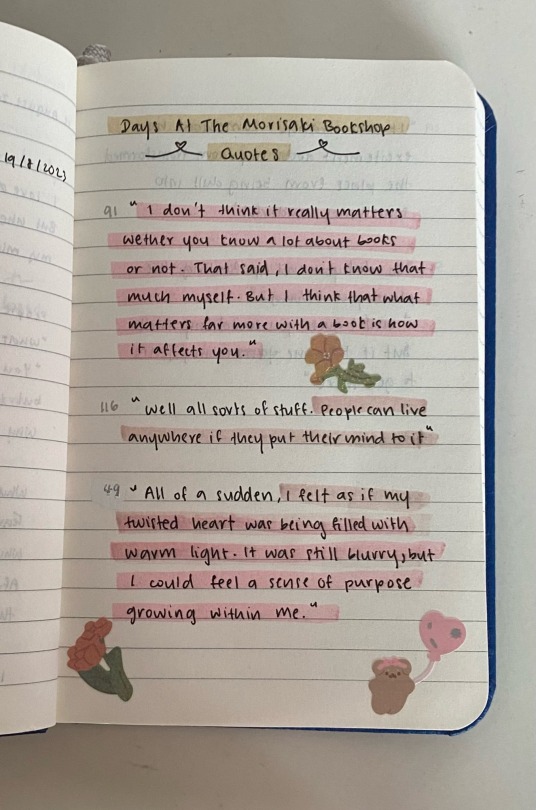 19/8/2023
Days At The Morisaki Bookshop
Quotes
91 " I don't think it really matters
wether you know a lot about books
or not. That said, I don't know that
much myself. But I think that what
matters far more with a book is how
it affects you."
116 "well all sorts of stuff. People can live
anywhere if they put their mind to it"
49 " All of a sudden, I felt as if my
twisted heart was being filled with
warm light. It was still blurry, but
I could feel a sense of purpose
growing within me."